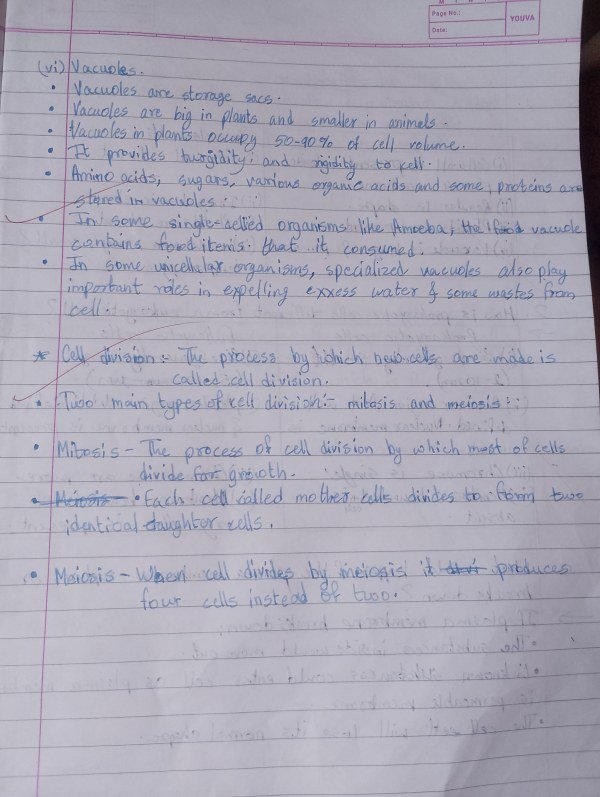 Page No.:
YOUVA
Date:
(vi) Vacuoles.
• Vacuoles are storage sacs.
• Vacuoles are big in plants and smaller in animals.
• Vacuoles in plants occupy 50-90% of cell volume.
• It provides turgidity and rigidity to cell.
• Amino acids, sugars, various organic acids and some proteins are
stored in vacuoles.
• In some single-celled organisms like Amoeba, the food vacuole
contains food items that it consumed.
• In some unicellular organisms, specialized vacuoles also play
important roles in expelling exxess water & some wastes from
cell.
* Cell division :- The process by which new cells are made is
called cell division.
• Two main types of cell division :- mitosis and meiosis.
• Mitosis - The process of cell division by which most of cells
divide for growth.
• Meiosis - • Each cell called mother cells divides to form two
identical daughter cells.
• Meiosis - When cell divides by meiosis it produces
four cells instead of two.